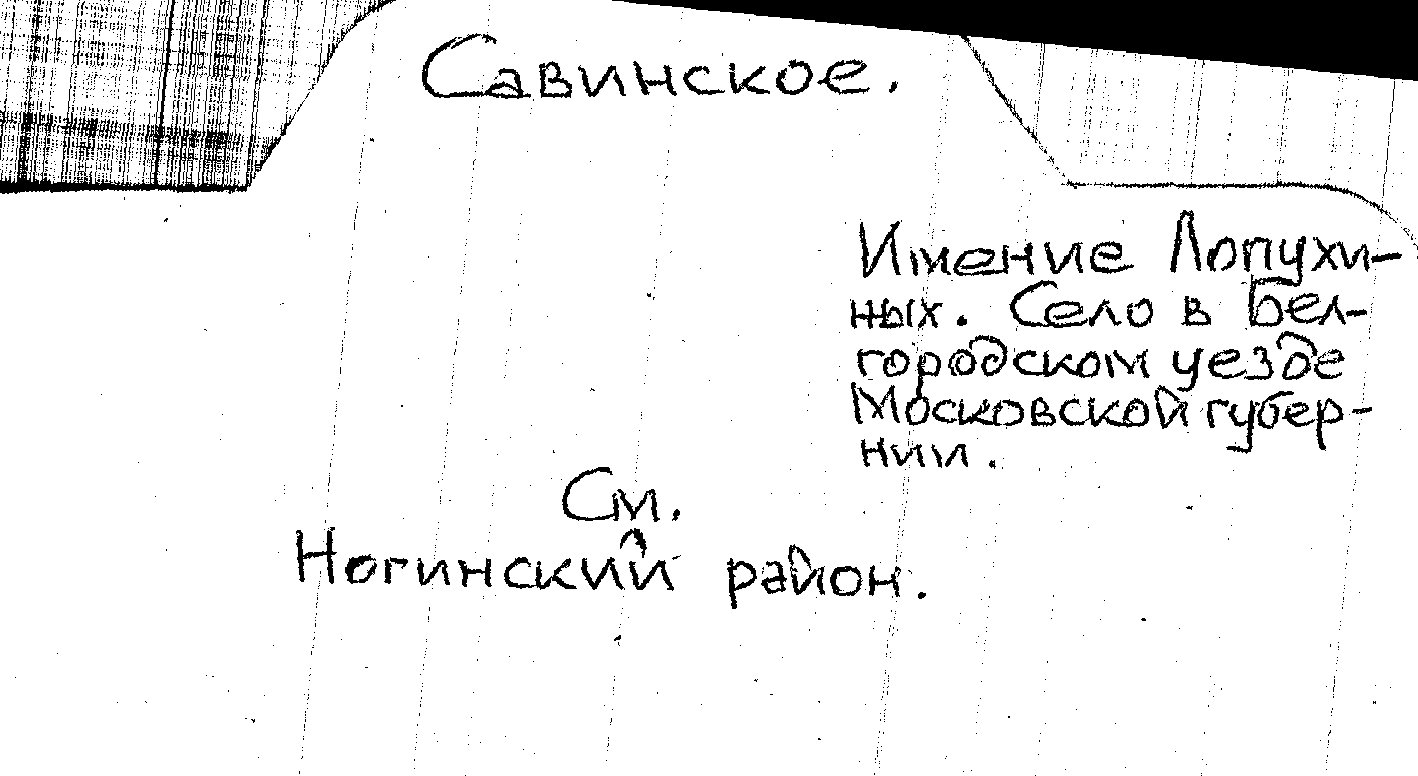 Савинское.
Имение Лопухи-
ных. Село в Бел-
городском уезде
Московской губер-
нии.
См.
Ногинский район.